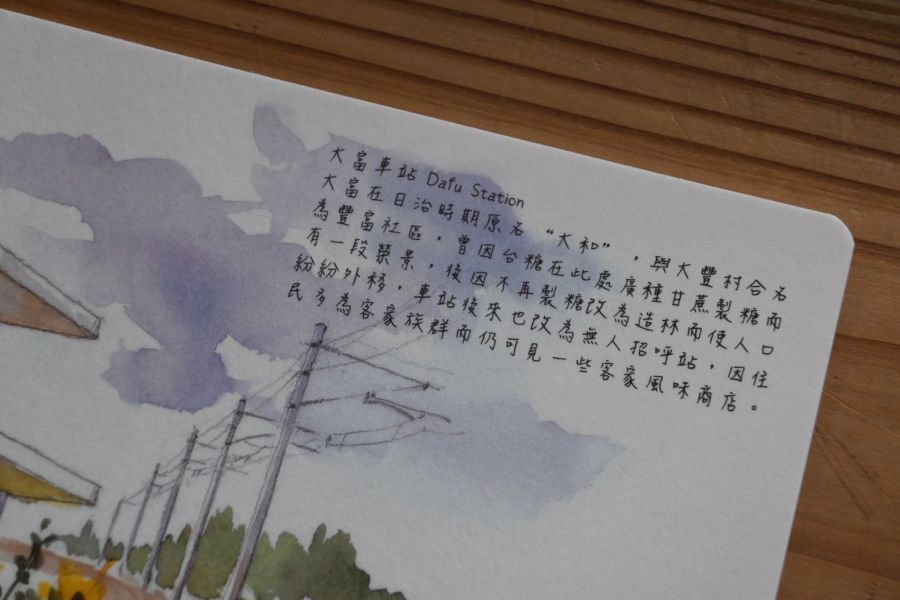 大富車站 Dafu Station
大富在日治時期原名 “大和”，與大豐村合名
為豐富社區，曾因台糖在此處廣種甘蔗製糖而
有一段榮景，後因不再製糖改為造林而使人口
紛紛外移，車站後來也改為無人招呼站，因住
民多為客家族群而仍可見一些客家風味商店。